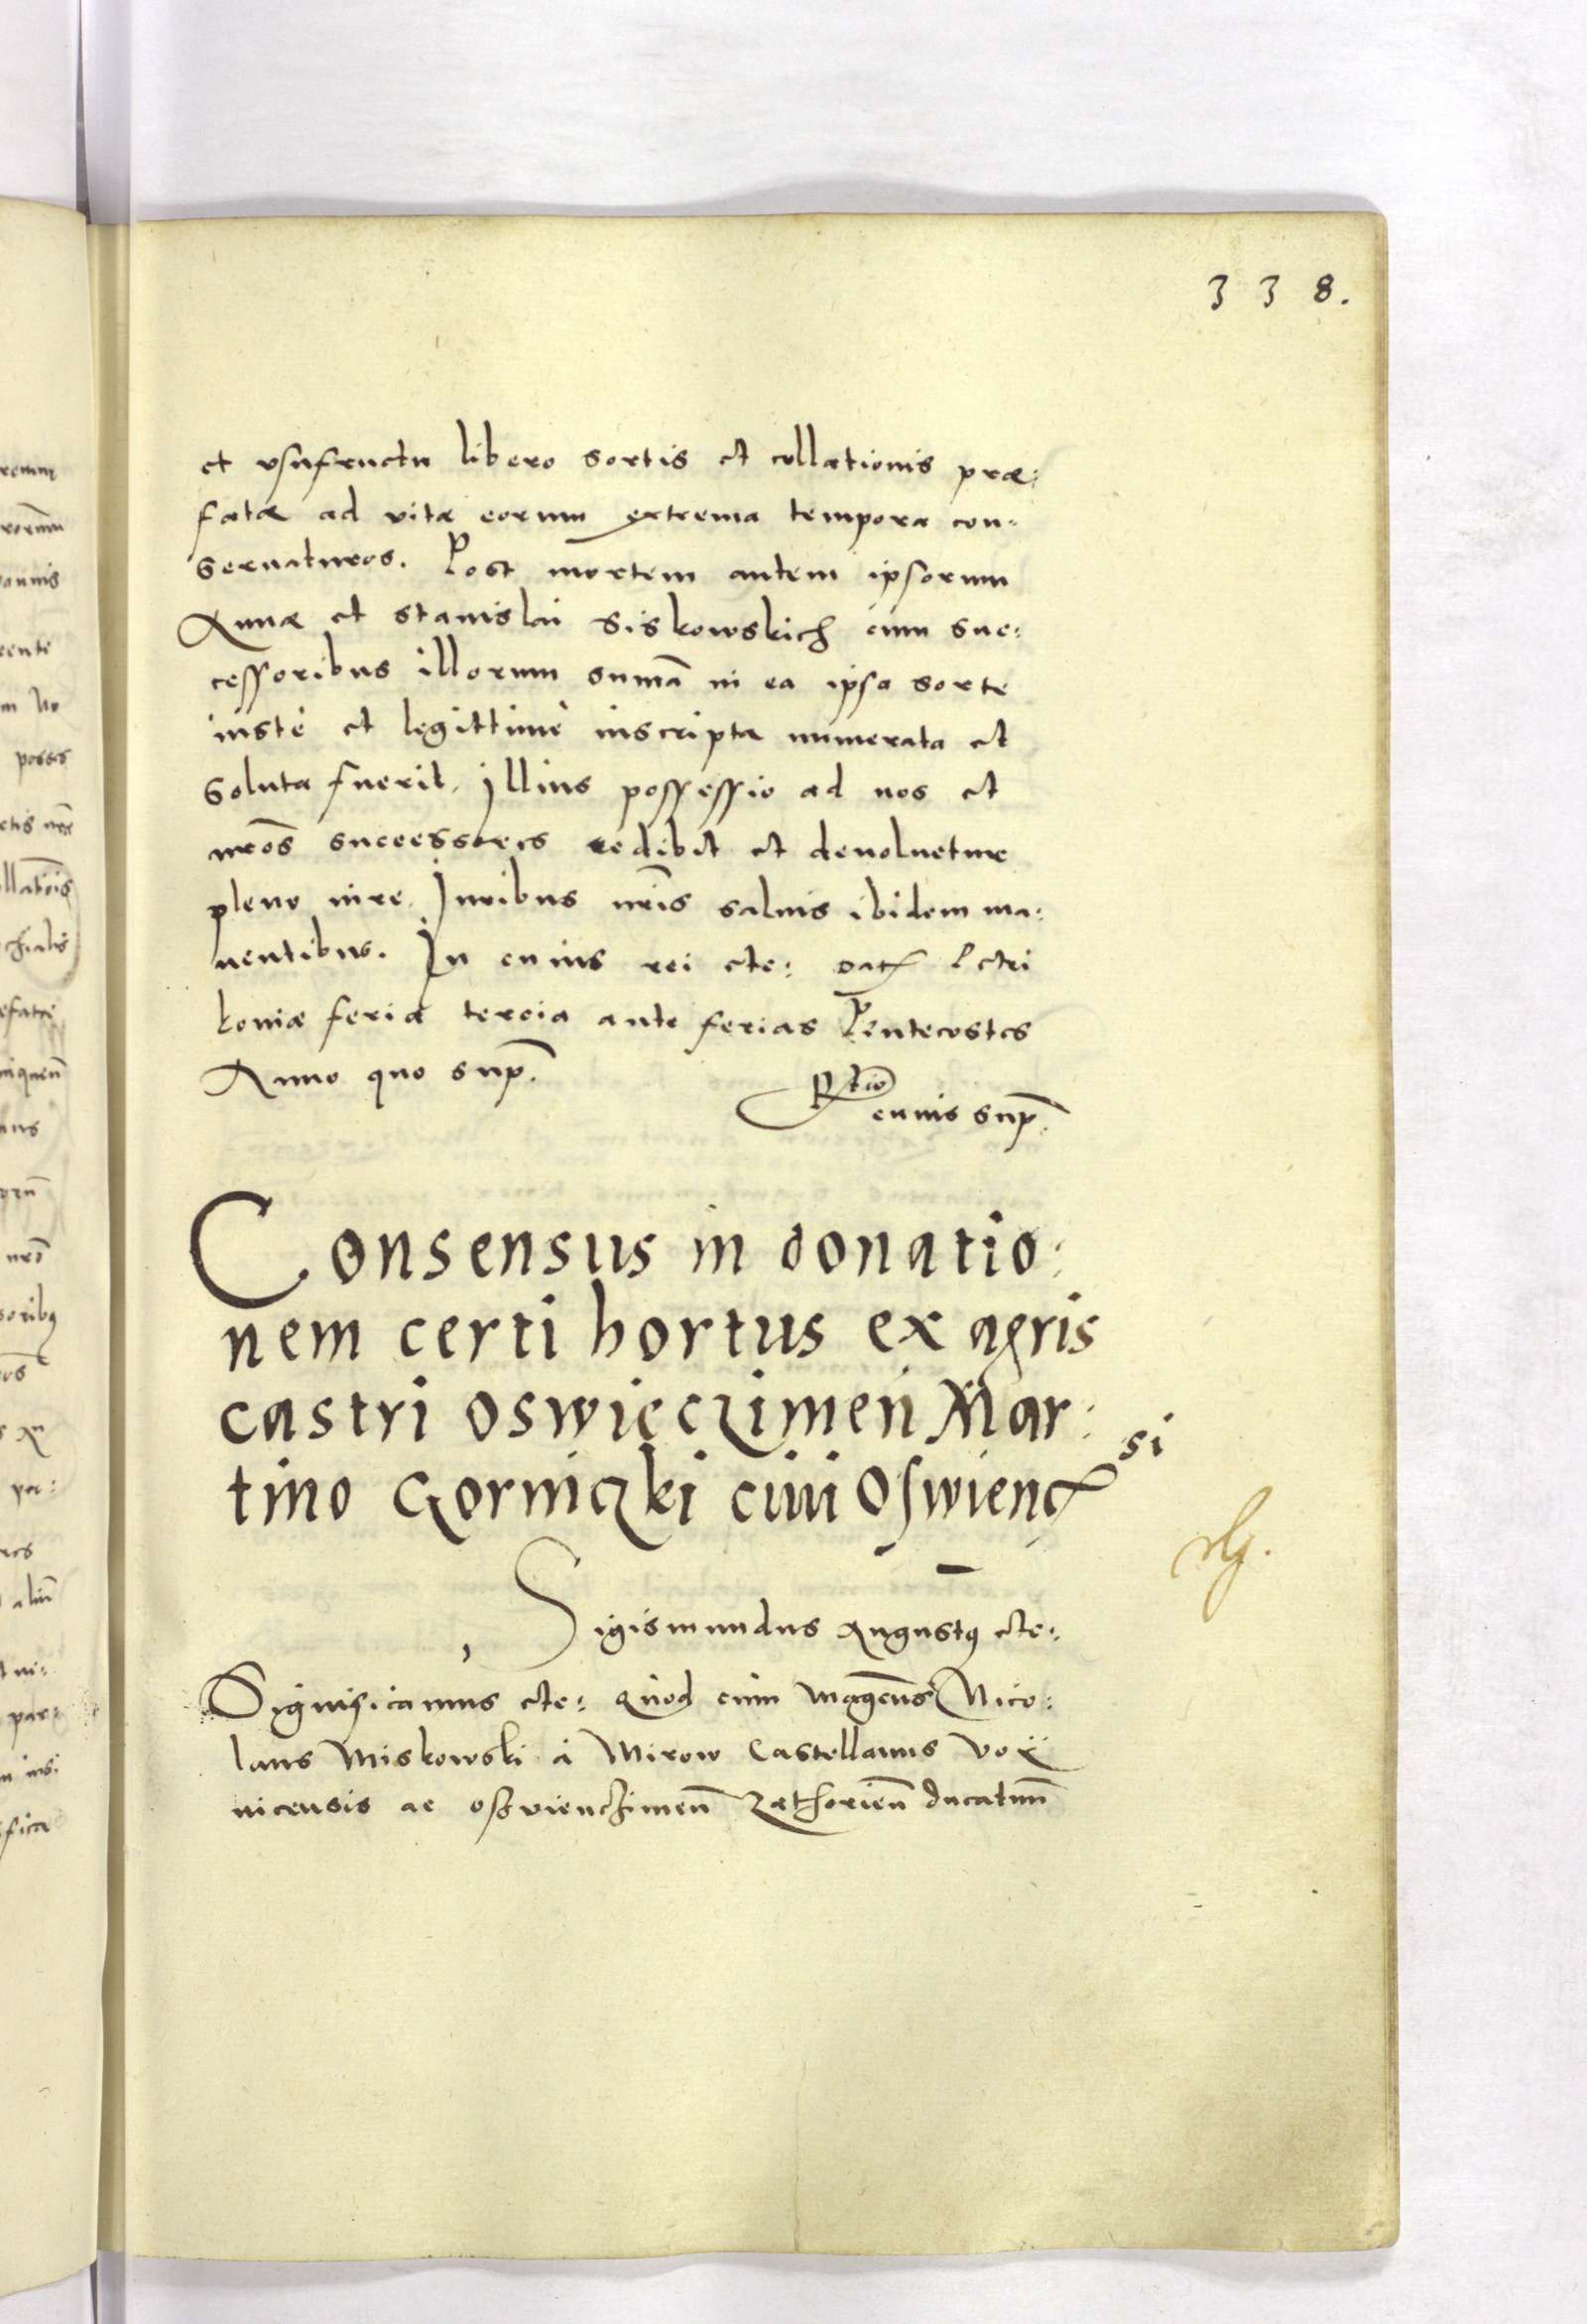 338.
et vsufructu libero sortis et collationis præ:
fatæ ad vitæ eorum extrema tempora con:
seruaturos. Post mortem autem ipsorum
Annæ et Stanislai Siskowskich cum suc:
cessoribus illorum summã in ea ipsa sorte
iuste et legittime inscripta numerata et
soluta fuerit, Illius possessio ad nos et
nrõs successores redibit et deuoluetur
pleno iure, Iuribus nrĩs saluis ibidem ma:
nentibus. In cuius rei etc:
koniæ feria tercia ante ferias Pentecostes
Anno quo sup.
Rtio
cuius sup.
Consensus in donatio:
nem certi hortus ex agris
castri Oswieczimeñ Mar:
tino Gorniczki ciui Oswienc si
Sigismundus Augustus etc:
Significamus etc: Quod cum Magcus Nico:
laus Miskowski a Mirow Castellanus Voÿ
nicensis ac oswienczimeñ Zathorieñ ducatuũ